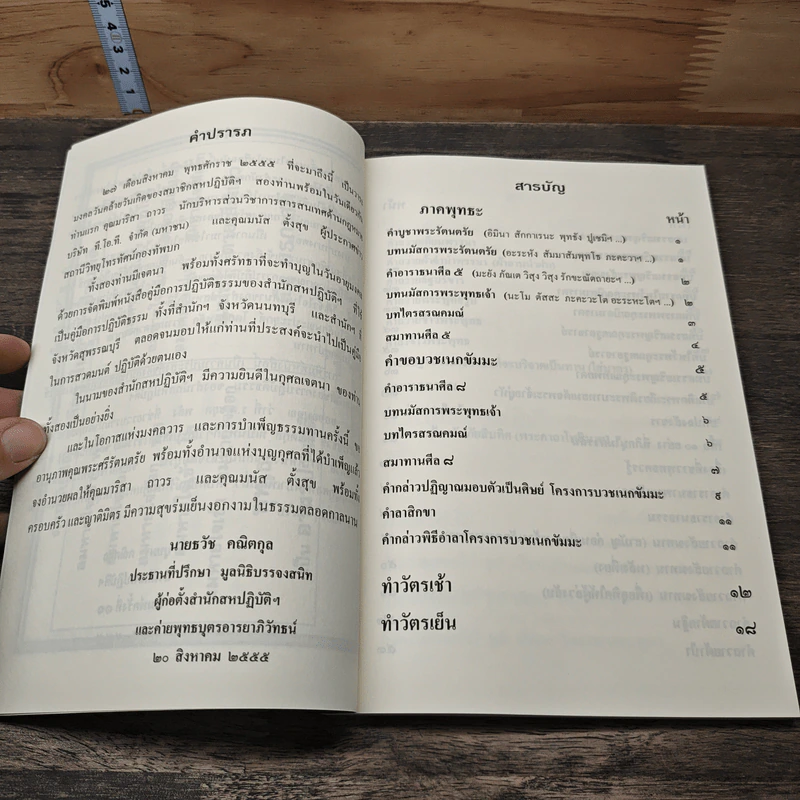 5 4 3 2 1
คำปรารภ
๒๗ เดือนสิงหาคม พุทธศักราช ๒๕๕๕ ที่จะมาถึงนี้ เป็นวาระ
มงคลวันคล้ายวันเกิดของสมาชิกสหปฏิบัติฯ สองท่านพร้อมในวันเดียวกัน
ท่านแรก คุณมาริสา ถาวร นักบริหารส่วนวิชาการสารสนเทศด้านกฎหมาย
บริษัท ที.โอ.ที. จำกัด (มหาชน) และคุณมนัส ตั้งสุข ผู้ประกาศข่าว
สถานีวิทยุโทรทัศน์กองทัพบก
ทั้งสองท่านมีเจตนา พร้อมทั้งศรัทธาที่จะทำบุญในวันอายุมงคล
ด้วยการจัดพิมพ์หนังสือคู่มือการปฏิบัติธรรมของสำนักสหปฏิบัติฯ ที่ใช้
เป็นคู่มือการปฏิบัติธรรม ทั้งที่สำนักฯ จังหวัดนนทบุรี และสำนักฯ ที่
จังหวัดสุพรรณบุรี ตลอดจนมอบให้แก่ท่านที่ประสงค์จะนำไปเป็นคู่มือ
ในการสวดมนต์ ปฏิบัติด้วยตนเอง
ในนามของสำนักสหปฏิบัติฯ มีความยินดีในกุศลเจตนา ของท่าน
ทั้งสองเป็นอย่างยิ่ง
และในโอกาสแห่งมงคลวาร และการบำเพ็ญธรรมทานครั้งนี้ ขอ
อานุภาพคุณพระศรีรัตนตรัย พร้อมทั้งอำนาจแห่งบุญกุศลที่ได้บำเพ็ญแล้ว
จงอำนวยผลให้คุณมาริสา ถาวร และคุณมนัส ตั้งสุข พร้อมทั้ง
ครอบครัว และญาติมิตร มีความสุขร่มเย็นงอกงามในธรรมตลอดกาลนาน
นายธวัช คณิตกุล
ประธานที่ปรึกษา มูลนิธิบรรจงสนิท
ผู้ก่อตั้งสำนักสหปฏิบัติฯ
และค่ายพุทธบุตรอารยาภิวัทธน์
๒๐ สิงหาคม ๒๕๕๕
สารบัญ
ภาคพุทธะ หน้า
คำบูชาพระรัตนตรัย (อิมินา สักกาเรนะ พุทธัง ปูเชมิฯ ...) ๑
บทนมัสการพระรัตนตรัย (อะระหัง สัมมาสัมพุทโธ ภะคะวาฯ ...) ๑
คำอาราธนาศีล ๕ (มะยัง ภันเต วิสุง วิสุง รักขะณัตถายะฯ ...) ๒
บทนมัสการพระพุทธเจ้า (นะโม ตัสสะ ภะคะวะโต อะระหะโตฯ ...) ๒
บทไตรสรณคมณ์ ๓
สมาทานศีล ๕ ๔
คำขอบวชเนกขัมมะ ๕
คำอาราธนาศีล ๘ ๕
บทนมัสการพระพุทธเจ้า ๖
บทไตรสรณคมณ์ ๖
สมาทานศีล ๘ ๗
คำกล่าวปฏิญาณมอบตัวเป็นศิษย์ โครงการบวชเนกขัมมะ ๙
คำลาสิกขา ๑๑
คำกล่าวพิธีอำลาโครงการบวชเนกขัมมะ ๑๑
ทำวัตรเช้า ๑๒
ทำวัตรเย็น ๑๘